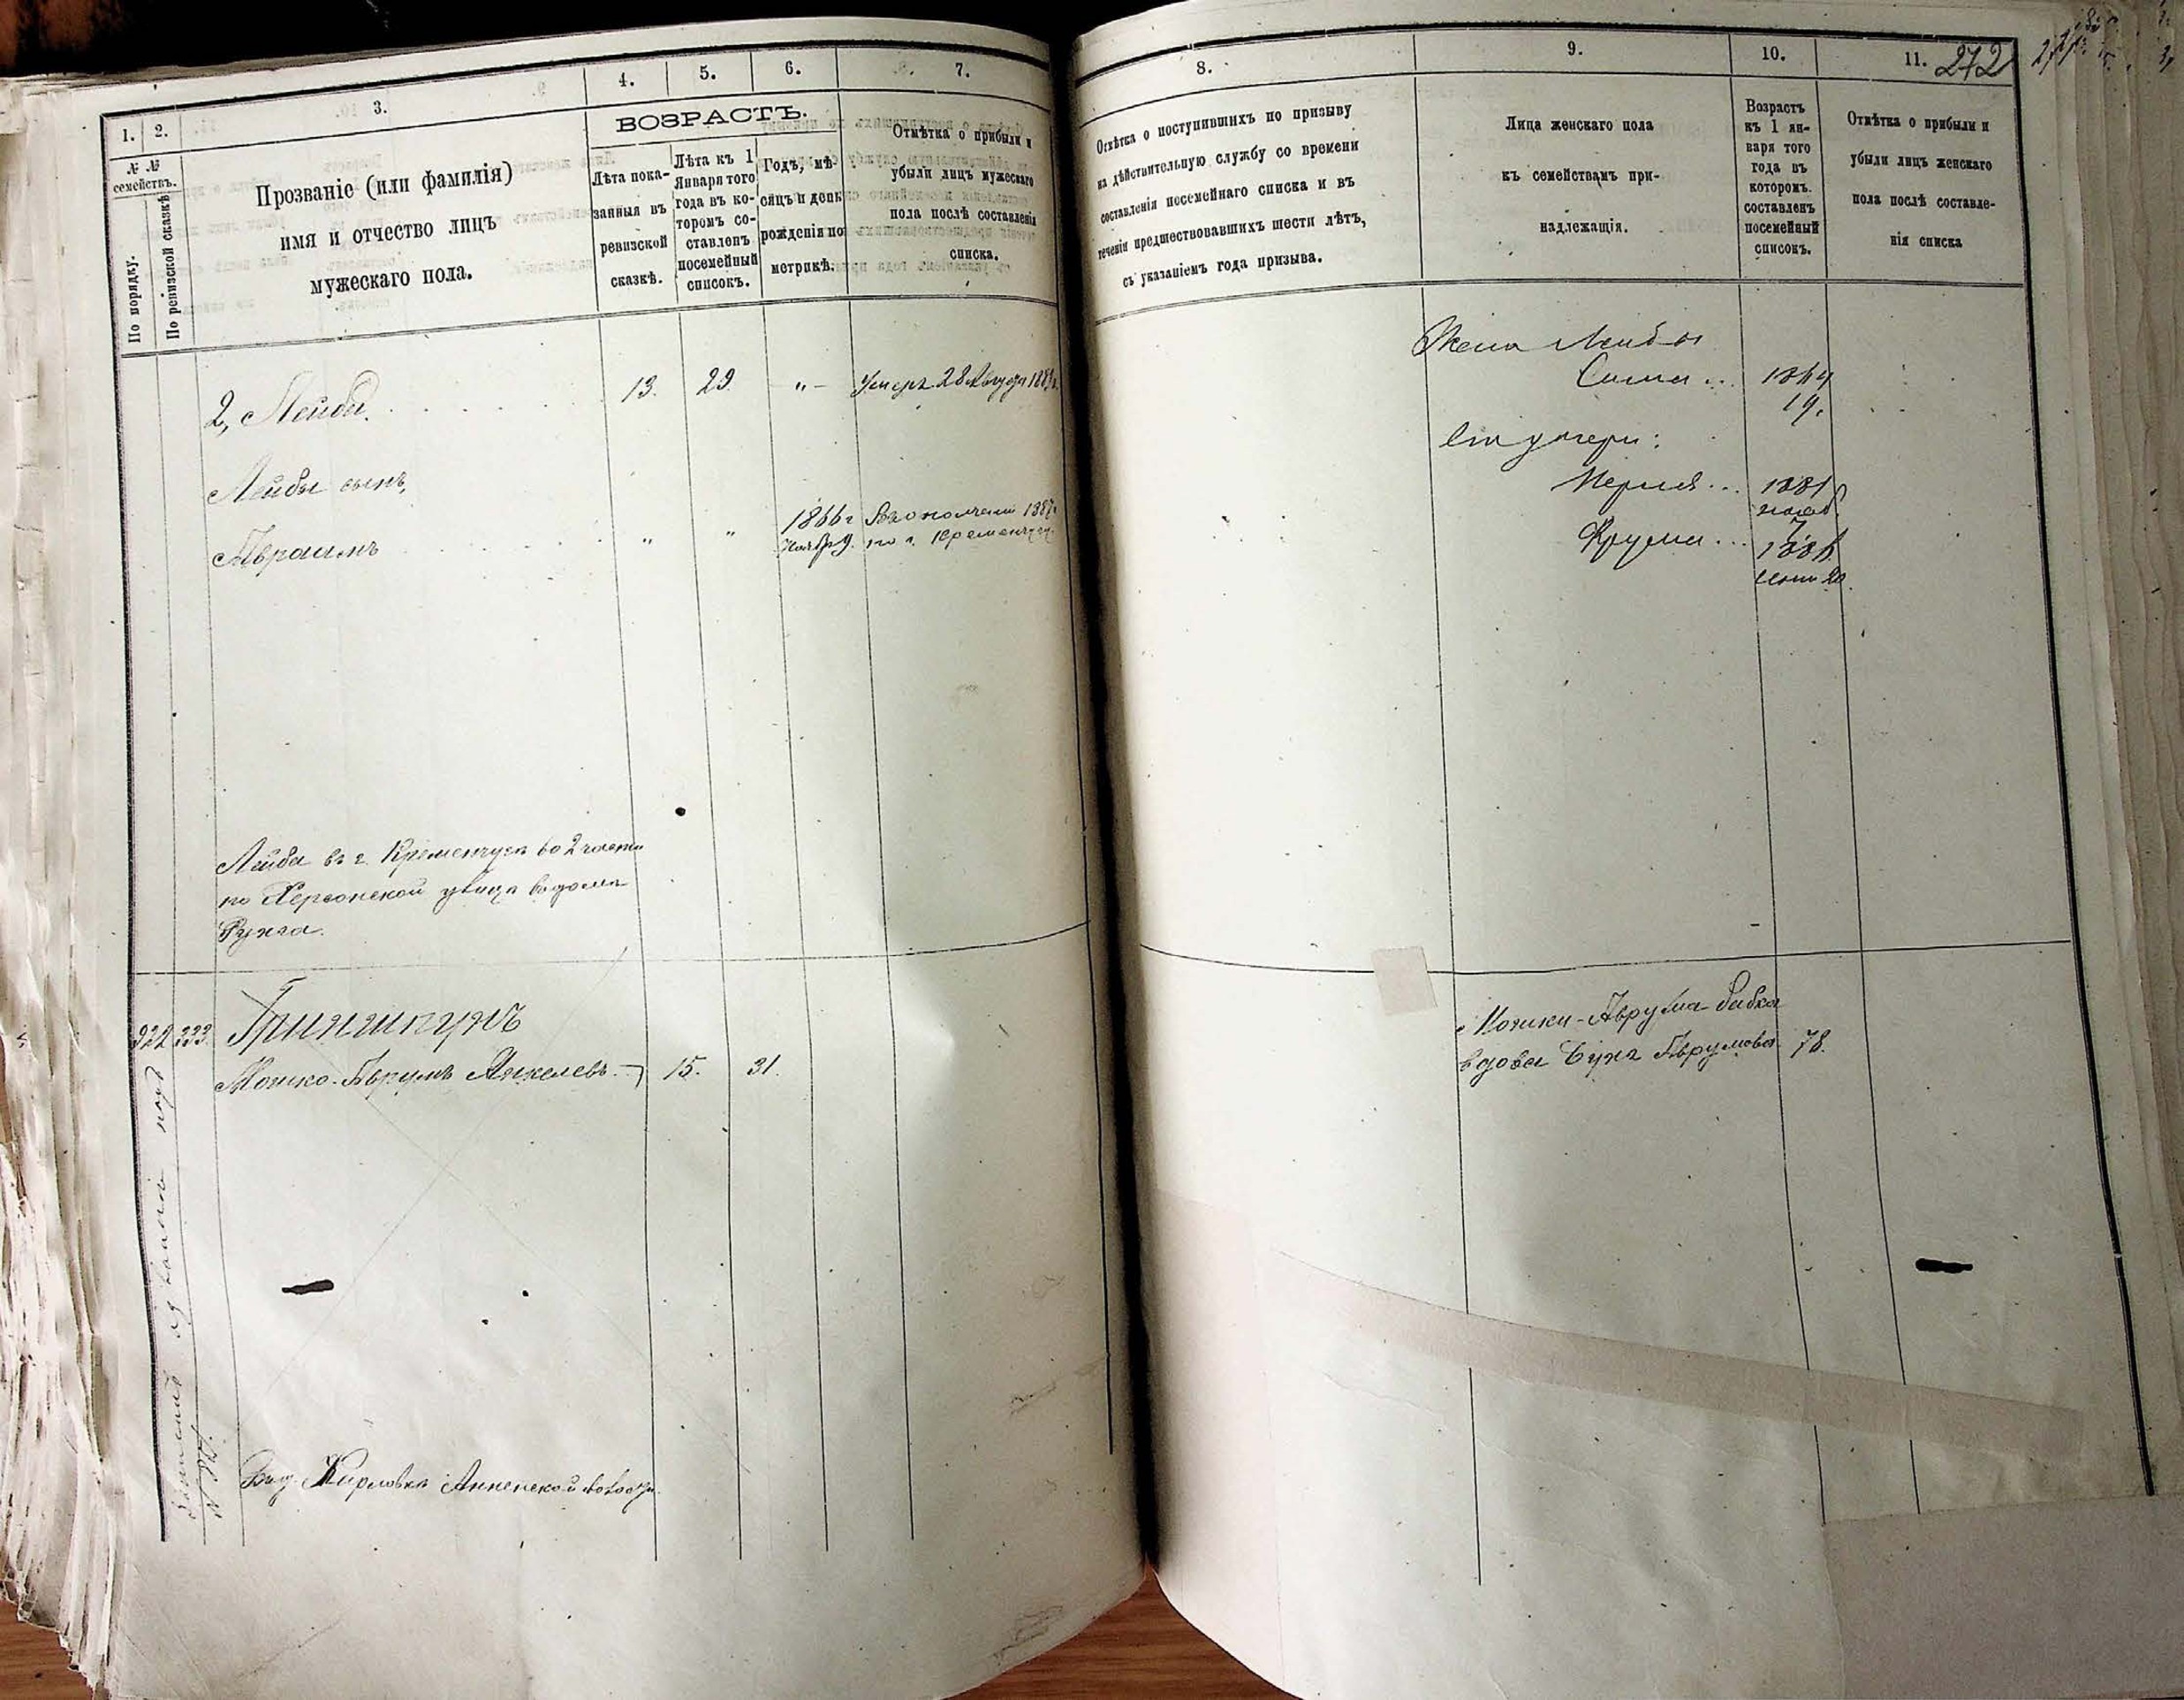 1. 2. 3. 4. 5. 6. 7.
№ №
семействъ.
По порядку.
По ревизской сказкѣ
Прозваніе (или фамилія)
имя и отчество лицъ
мужескаго пола.
ВОЗРАСТЪ.
Лѣта пока-
занныя въ
ревизской
сказкѣ.
Лѣта къ 1
Января того
года въ ко-
торомъ со-
ставленъ
посемейный
списокъ.
Годъ, мѣ-
сяцъ и день
рожденія по
метрикѣ.
Отмѣтка о прибыли и
убыли лицъ мужескаго
пола послѣ составленія
списка.
2, Лейба. 13. 29 „ – Умеръ 28 Августа
Лейбы сынъ,
Авраамъ „ „ 1866 г
Ноябр 9. по г. Кременчугу
Лейба въ г. Кременчугѣ во 2 части
по Херсонской улицѣ въ домѣ
322 333. Гриншпунъ
Мошко-Аврумъ Янкелевъ 15. 31.
Карловка Анненской волости
8. 9. 10. 11. 272
Отмѣтка о поступившихъ по призыву
на дѣйствительную службу со времени
составленія посемейнаго списка и въ
теченіи предшествовавшихъ шести лѣтъ,
съ указаніемъ года призыва.
Лица женскаго пола
къ семействамъ при-
надлежащія.
Возрастъ
къ 1 ян-
варя того
года въ
котором.
составленъ
посемейный
списокъ.
Отмѣтка о прибыли и
убыли лицъ женскаго
пола послѣ составле-
нія списка
Жена Лейбы
Сима 1864
19.
его дочери:
Перля 1881
Фрума 1886
Мошки-Аврума бабка
вдова Аврумова 78.